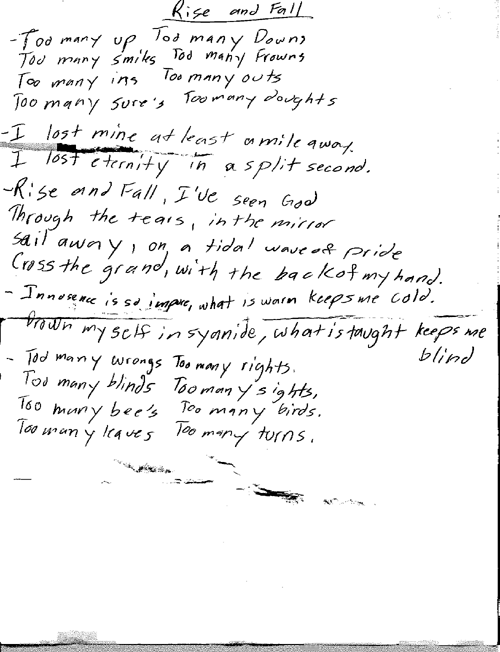 Rise and Fall
- Too many up Too many Downs
Too many smiles Too many Frowns
Too many ins Too many outs
Too many sure's Too many doughts
- I lost mine at least a mile away.
I lost eternity in a split second.
- Rise and Fall, I've seen God
Through the tears, in the mirror
sail away, on a tidal wave of pride
Cross the grand, with the back of my hand.
- Innosence is so impure, what is warm keeps me cold.
Drown my self in syanide, what is taught keeps me
blind
- Too many wrongs Too many rights.
Too many blinds Too many sights,
Too many bee's Too many birds.
Too many leaves Too many turns.